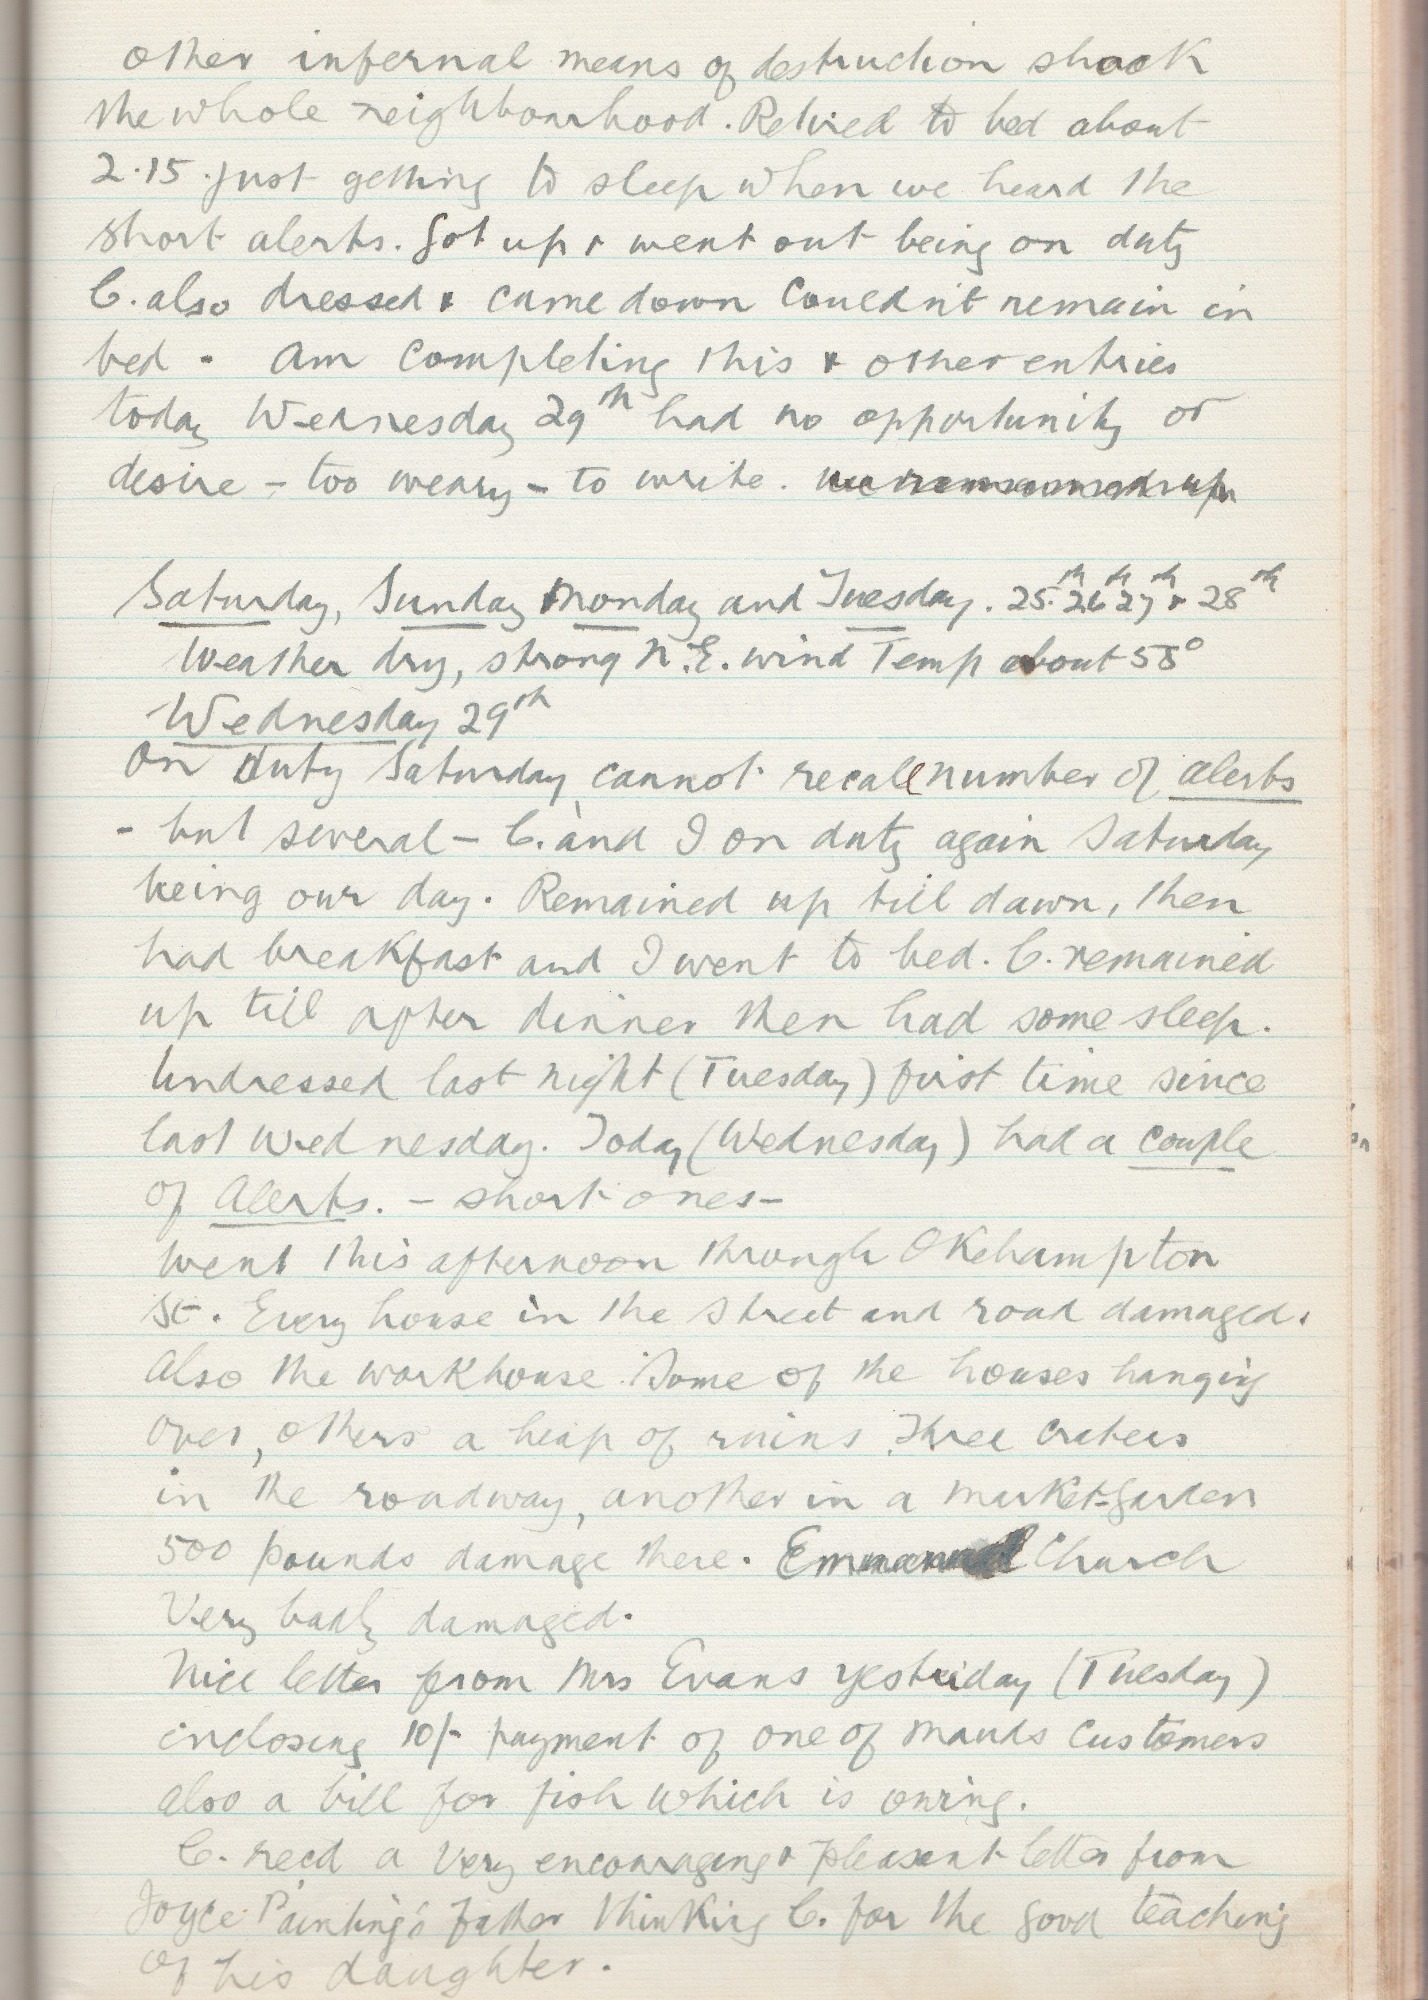 other infernal means of destruction shook
the whole neighbourhood. Retired to bed about
2.15. Just getting to sleep when we heard the
short alerts. Got up & went out being on duty
C. also dressed & came down couldn't remain in
bed. Am completing this & other entries
today Wednesday 29th had no opportunity or
desire – too weary – to write.
Saturday, Sunday Monday and Tuesday. 25th 26th 27th & 28th
Weather dry, strong N.E. wind Temp about 58°
Wednesday 29th
On duty Saturday cannot recall number of alerts
- but several – C. and I on duty again Saturday
being our day. Remained up till dawn, then
had breakfast and I went to bed. C. remained
up till after dinner then had some sleep.
Undressed last night (Tuesday) first time since
last Wednesday. Today (Wednesday) had a couple
of Alerts. – short ones –
Went this afternoon through Okehampton
St. Every house in the street and road damaged.
Also the workhouse. Some of the houses hanging
over, others a heap of ruins. Three craters
in the roadway, another in a market-garden
500 pounds damage there. Emmanuel Church
Very badly damaged.
Nice letter from Mrs Evans yesterday (Tuesday)
inclosing 10/- payment of one of Mauds customers
also a bill for fish which is owing.
C. recd a very encouraging & pleasant letter from
Joyce Painting's father thinking C. for the good teaching
of his daughter.